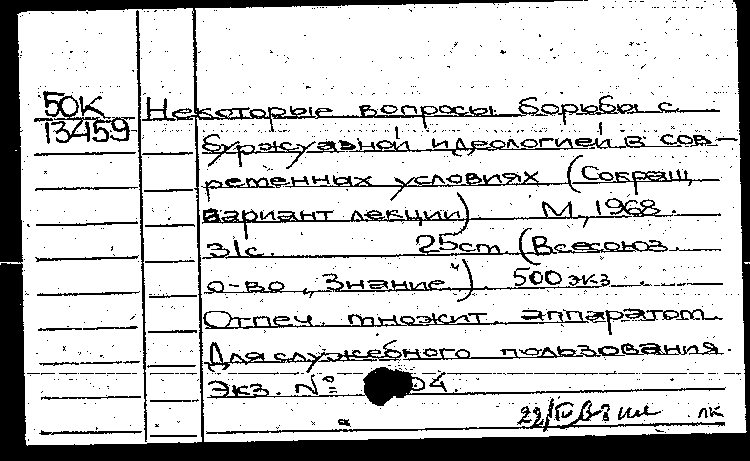 50К
13459
Некоторые вопросы борьбы с
буржуазной идеологией в сов-
ременных условиях (Сокращ.
вариант лекции). М., 1968.
31с. 25см (Всесоюз.
о-во „Знание"). 500 экз.
Отпеч. множит. аппаратом.
Для служебного пользования.
Экз. № 04.
лк